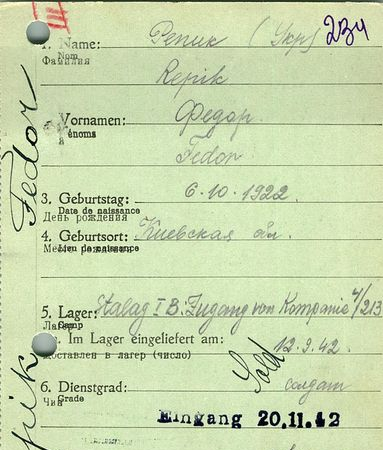 III
1. Name: Репик (Укр) 234
Nom
Фамилия
Repik
Vornamen: Федор.
Prénoms
Fedor.
3. Geburtstag: 6.10.1922.
Date de naissance
День рождения
4. Geburtsort: Киевская обл.
Lieu de naissance
Место рождения
5. Lager: Stalag I B: Zugang von Kompanie 4/213
Camp
Лагерь
Im Lager eingeliefert am: 12.9.42.
Доставлен в лагерь (число)
6. Dienstgrad: Sold солдат
Grade
Чин
Eingang 20.11.42
Fedor